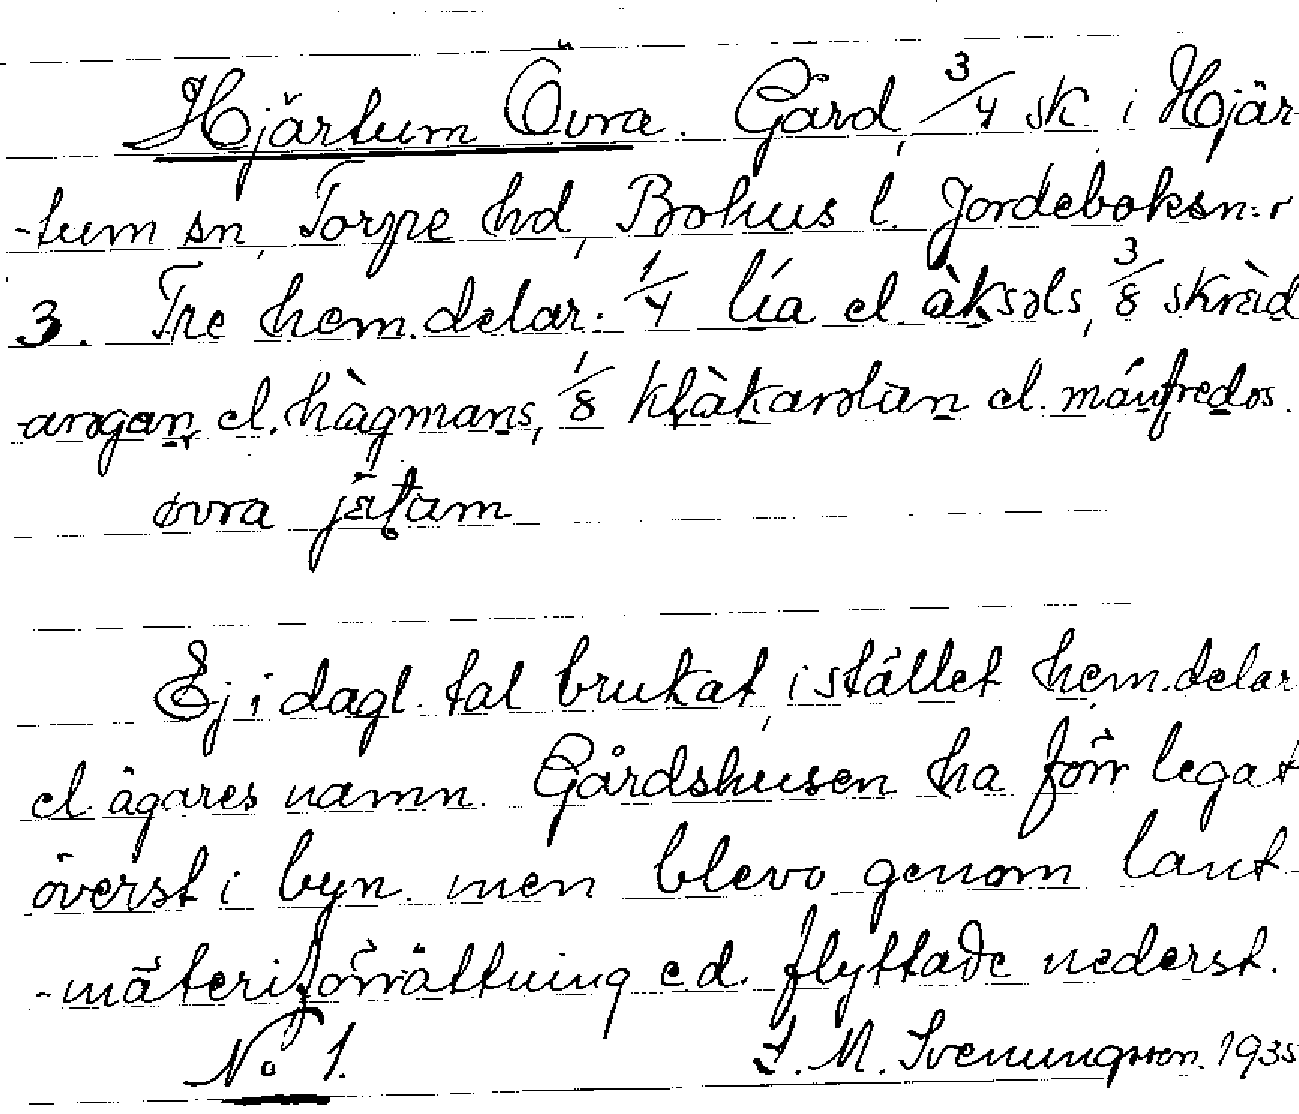 Hjärtum Övra. Gård, 3/4 sk i Hjär-
-tum sn, Torpe hd, Bohus l. Jordeboksn:r
3. Tre hem.delar: 1/4 lía el. àksəls, 3/8 skrὰd
-arəgan̥ el. hàgmans, 1/8 klàkarəlan el. mánfredəs.
øvra jäʈam
Ej i dagl. tal brukat, i stället hem.delar
el. ägares namn. Gårdshusen ha förr legat
överst i byn men blevo genom lant-
-mäteriförrättning e d. flyttade nederst.
No 1. J. M. Svenungsson. 1935